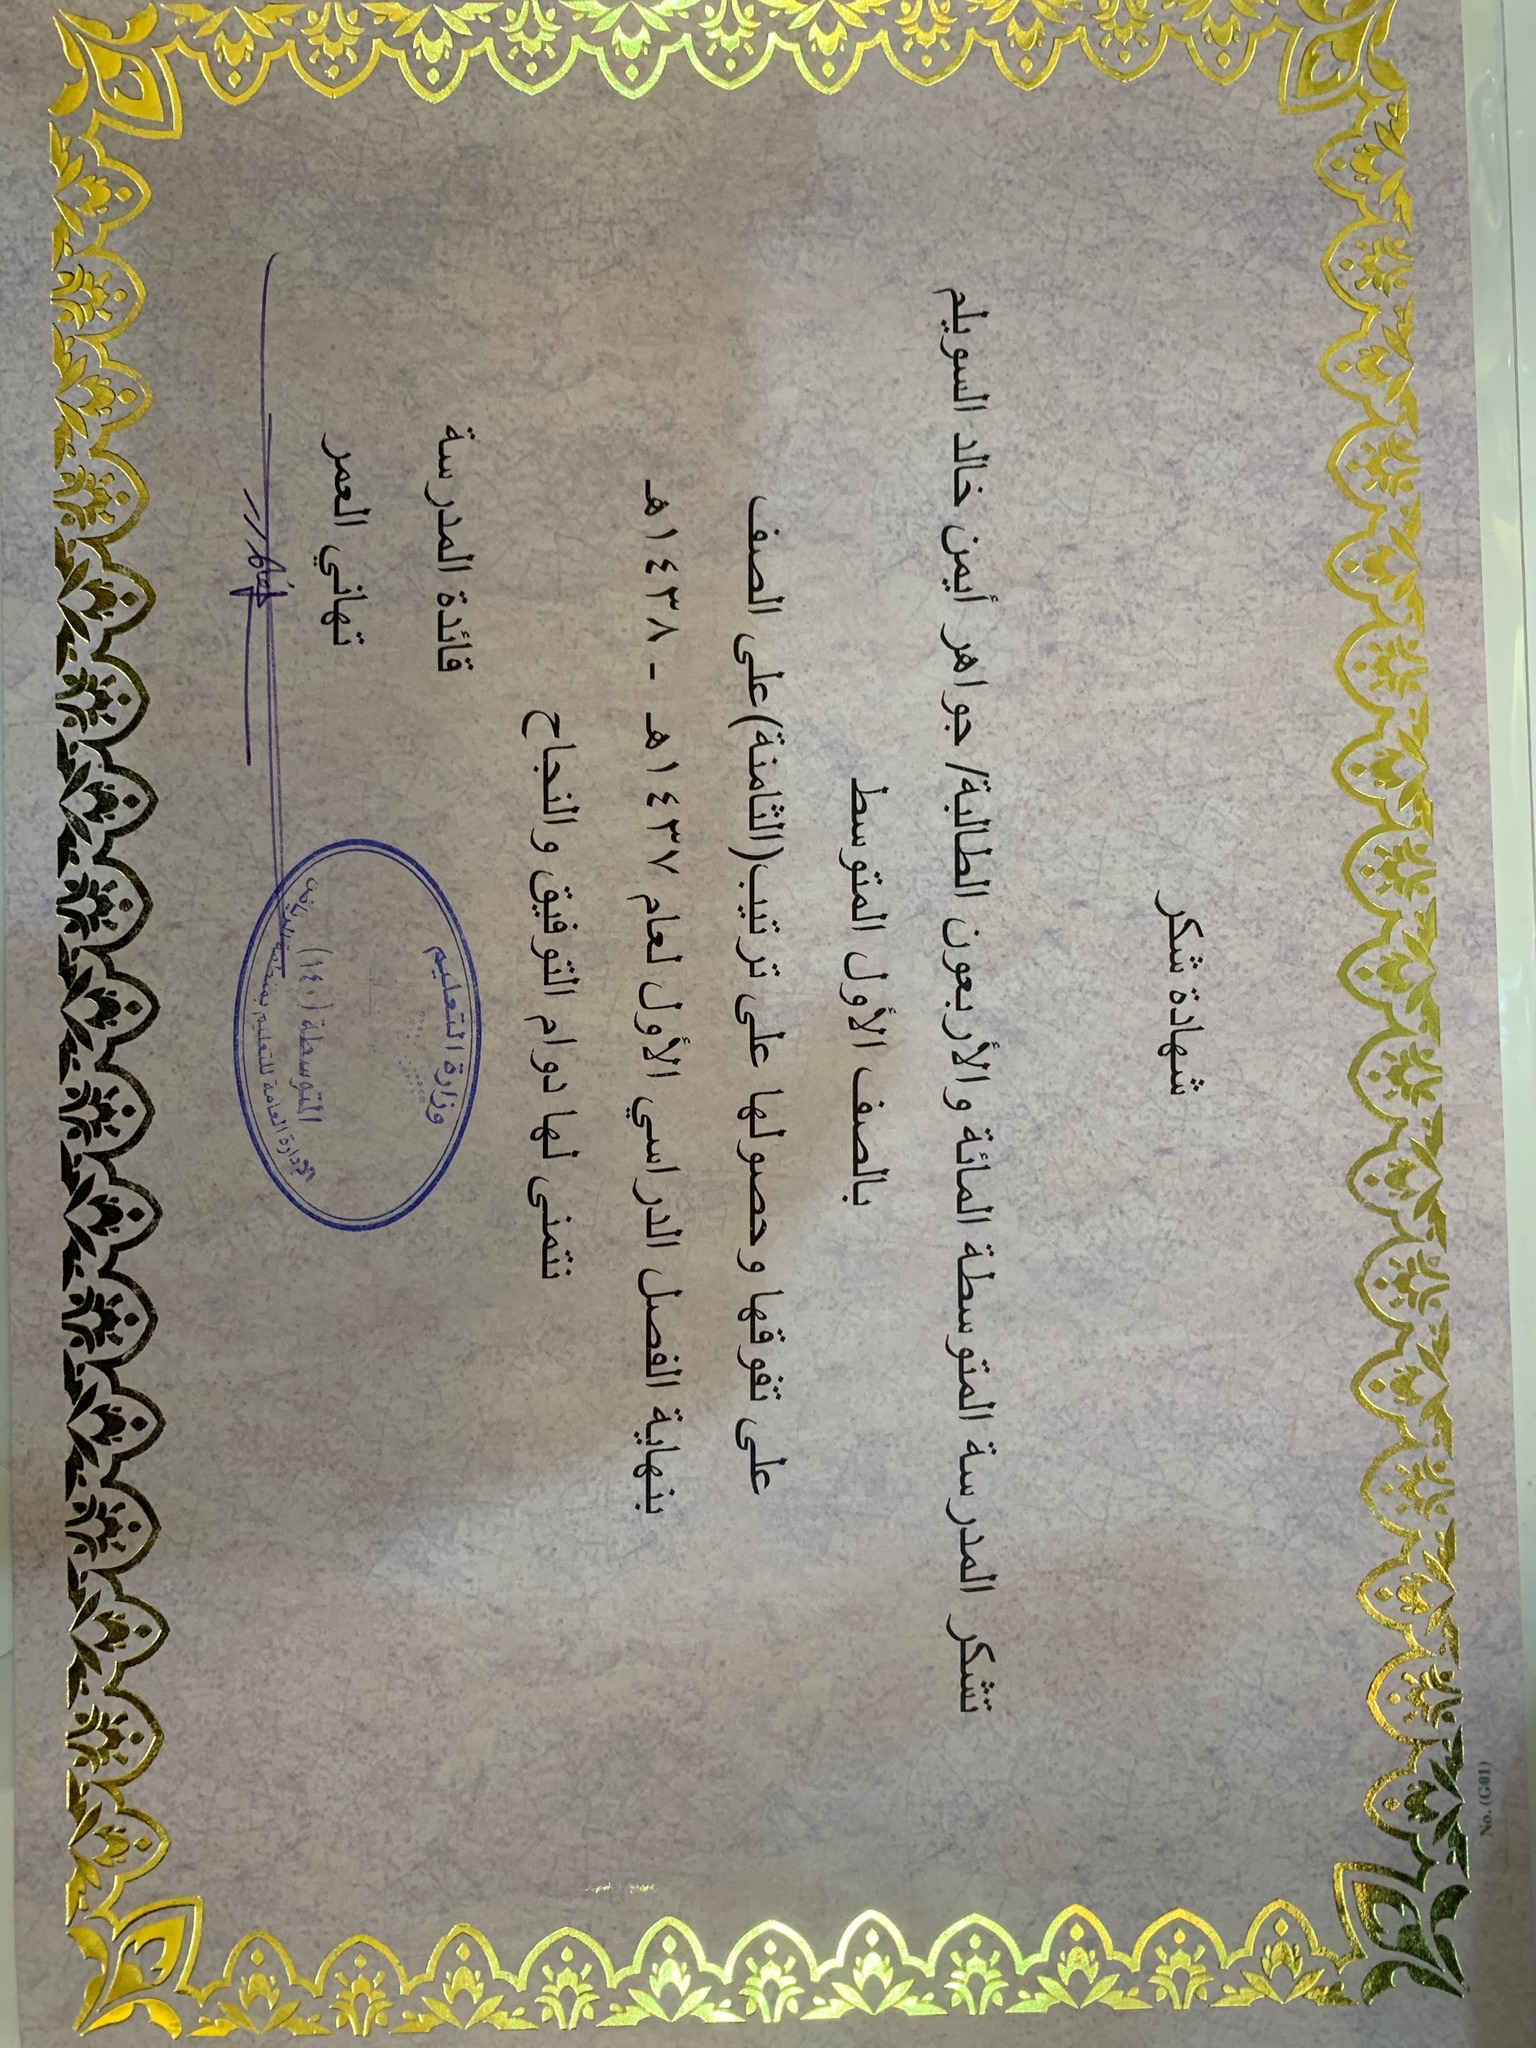 شهادة شكر
تشكر المدرسة المتوسطة المائة والأربعون الطالبة/ جواهر أيمن خالد السويلم
بالصف الأول المتوسط
على تفوقها وحصولها على ترتيب(الثامنة)على الصف
بنهاية الفصل الدراسي الأول لعام ١٤٣٧هـ - ١٤٣٨هـ
نتمنى لها دوام التوفيق والنجاح
قائدة المدرسة
تهاني العمر
وزارة التعليم
المتوسطة (١٤٠)
الإدارة العامة للتعليم بمنطقة الرياض
No. (G01)